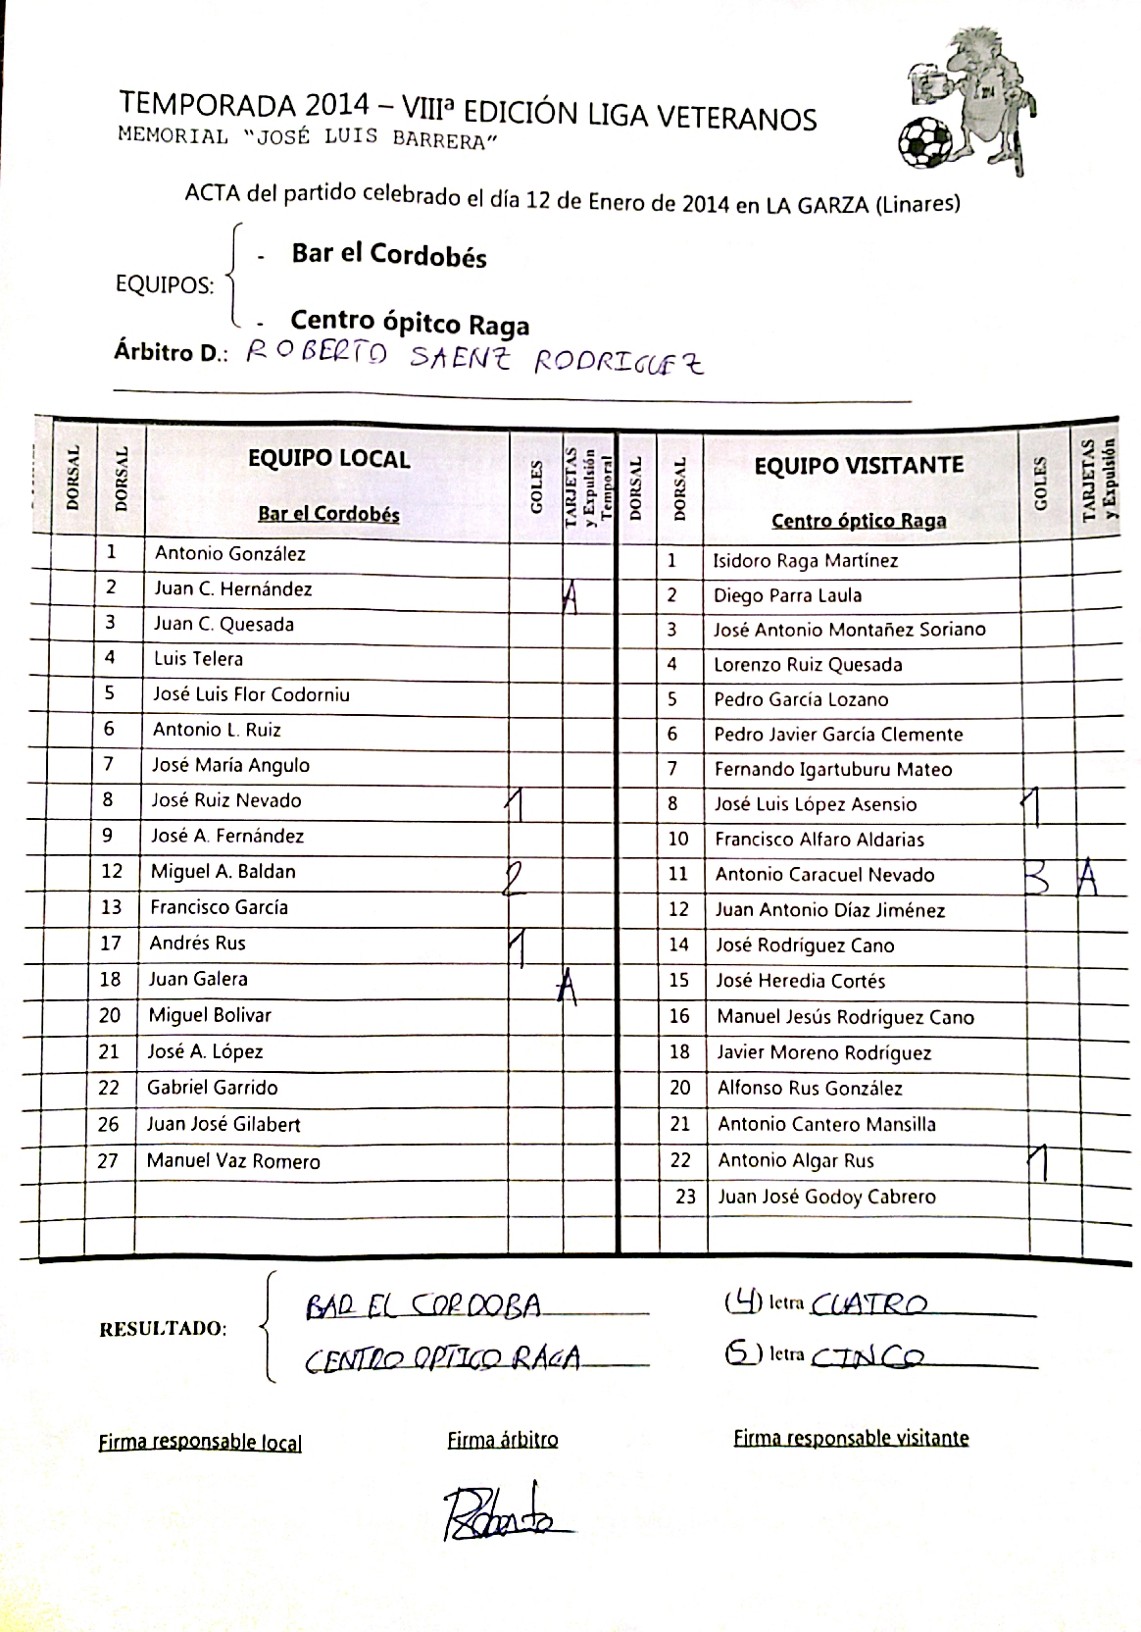 2014
TEMPORADA 2014 – VIIIª EDICIÓN LIGA VETERANOS
MEMORIAL "JOSÉ LUIS BARRERA"
ACTA del partido celebrado el día 12 de Enero de 2014 en LA GARZA (Linares)
EQUIPOS:
- Bar el Cordobés
- Centro ópitco Raga
Árbitro D.: ROBERTO SAENZ RODRIGUEZ
DORSAL DORSAL EQUIPO LOCAL Bar el Cordobés GOLES TARJETAS y Expulsión Temporal DORSAL DORSAL EQUIPO VISITANTE Centro óptico Raga GOLES TARJETAS y Expulsión
1 Antonio González 1 Isidoro Raga Martínez
2 Juan C. Hernández A 2 Diego Parra Laula
3 Juan C. Quesada 3 José Antonio Montañez Soriano
4 Luis Telera 4 Lorenzo Ruiz Quesada
5 José Luis Flor Codorniu 5 Pedro García Lozano
6 Antonio L. Ruiz 6 Pedro Javier García Clemente
7 José María Angulo 7 Fernando Igartuburu Mateo
8 José Ruiz Nevado 1 8 José Luis López Asensio 1
9 José A. Fernández 10 Francisco Alfaro Aldarias
12 Miguel A. Baldan 2 11 Antonio Caracuel Nevado 3 A
13 Francisco García 12 Juan Antonio Díaz Jiménez
17 Andrés Rus 1 14 José Rodríguez Cano
18 Juan Galera A 15 José Heredia Cortés
20 Miguel Bolivar 16 Manuel Jesús Rodríguez Cano
21 José A. López 18 Javier Moreno Rodríguez
22 Gabriel Garrido 20 Alfonso Rus González
26 Juan José Gilabert 21 Antonio Cantero Mansilla
27 Manuel Vaz Romero 22 Antonio Algar Rus 1
23 Juan José Godoy Cabrero
RESULTADO:
BAR EL CORDOBA (4) letra CUATRO
CENTRO OPTICO RAGA (5) letra CINCO
Firma responsable local Firma árbitro Firma responsable visitante
Roberto